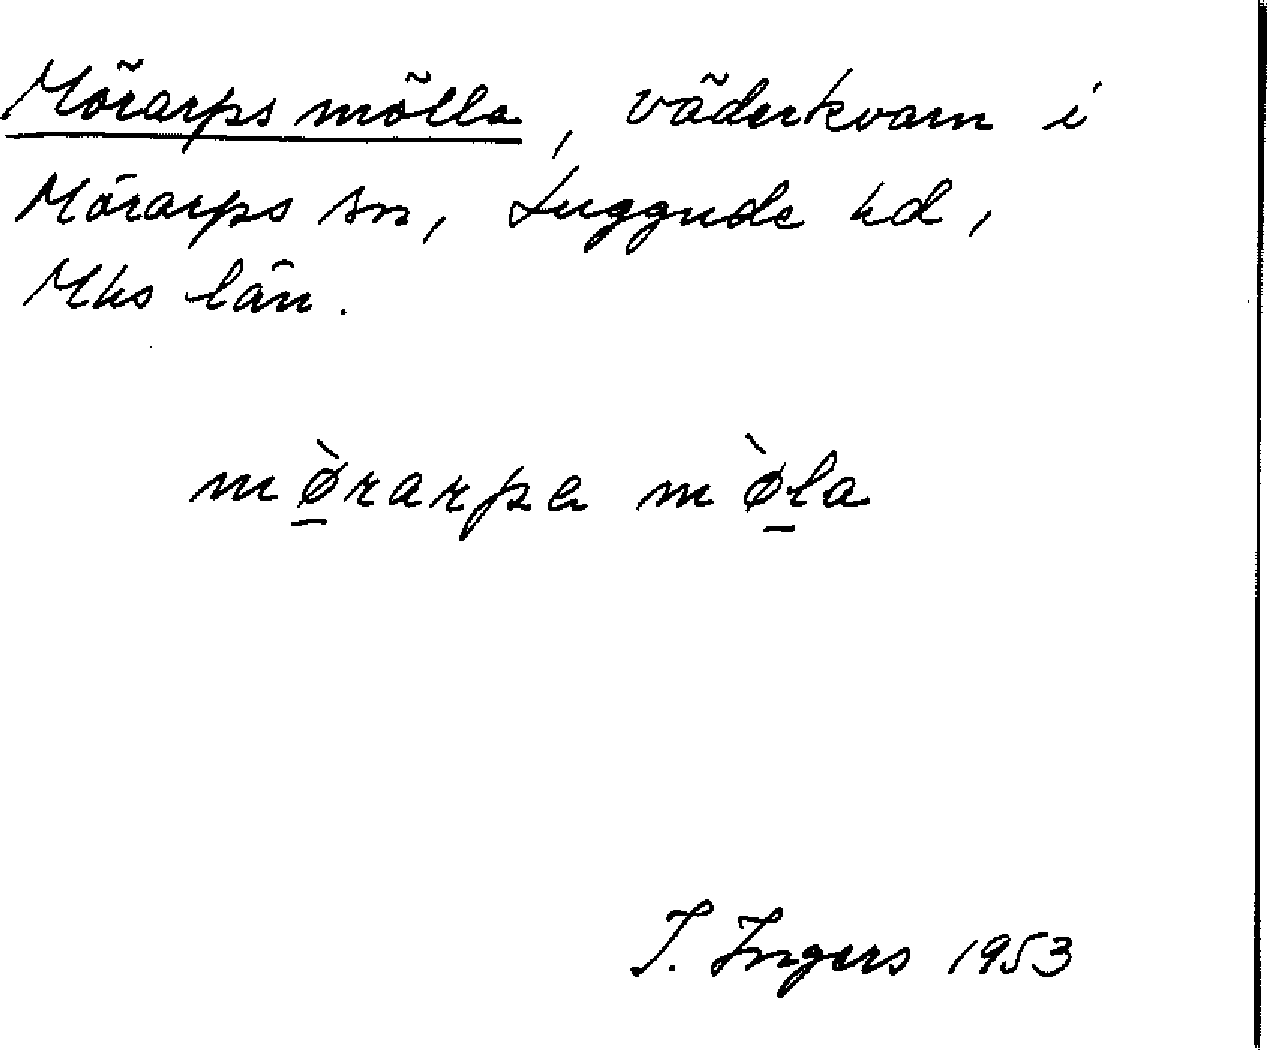 Mörarps mölla, väderkvarn i
Mörarps sn, Luggude hd,
Mhs län.
mø̲̀rarpa mø̲̀la
I. Ingers 1953